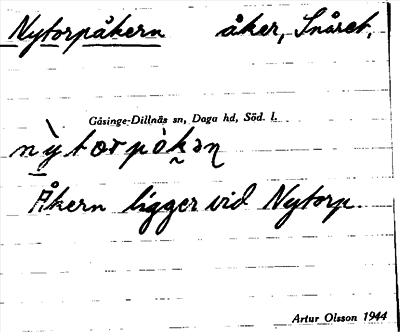 Nytorpåkern åker, Snåret.
Gåsinge-Dillnäs sn, Daga hd, Söd. l.
nỳtorpò̀kəɳ
Åkern ligger vid Nytorp.
Artur Olsson 1944